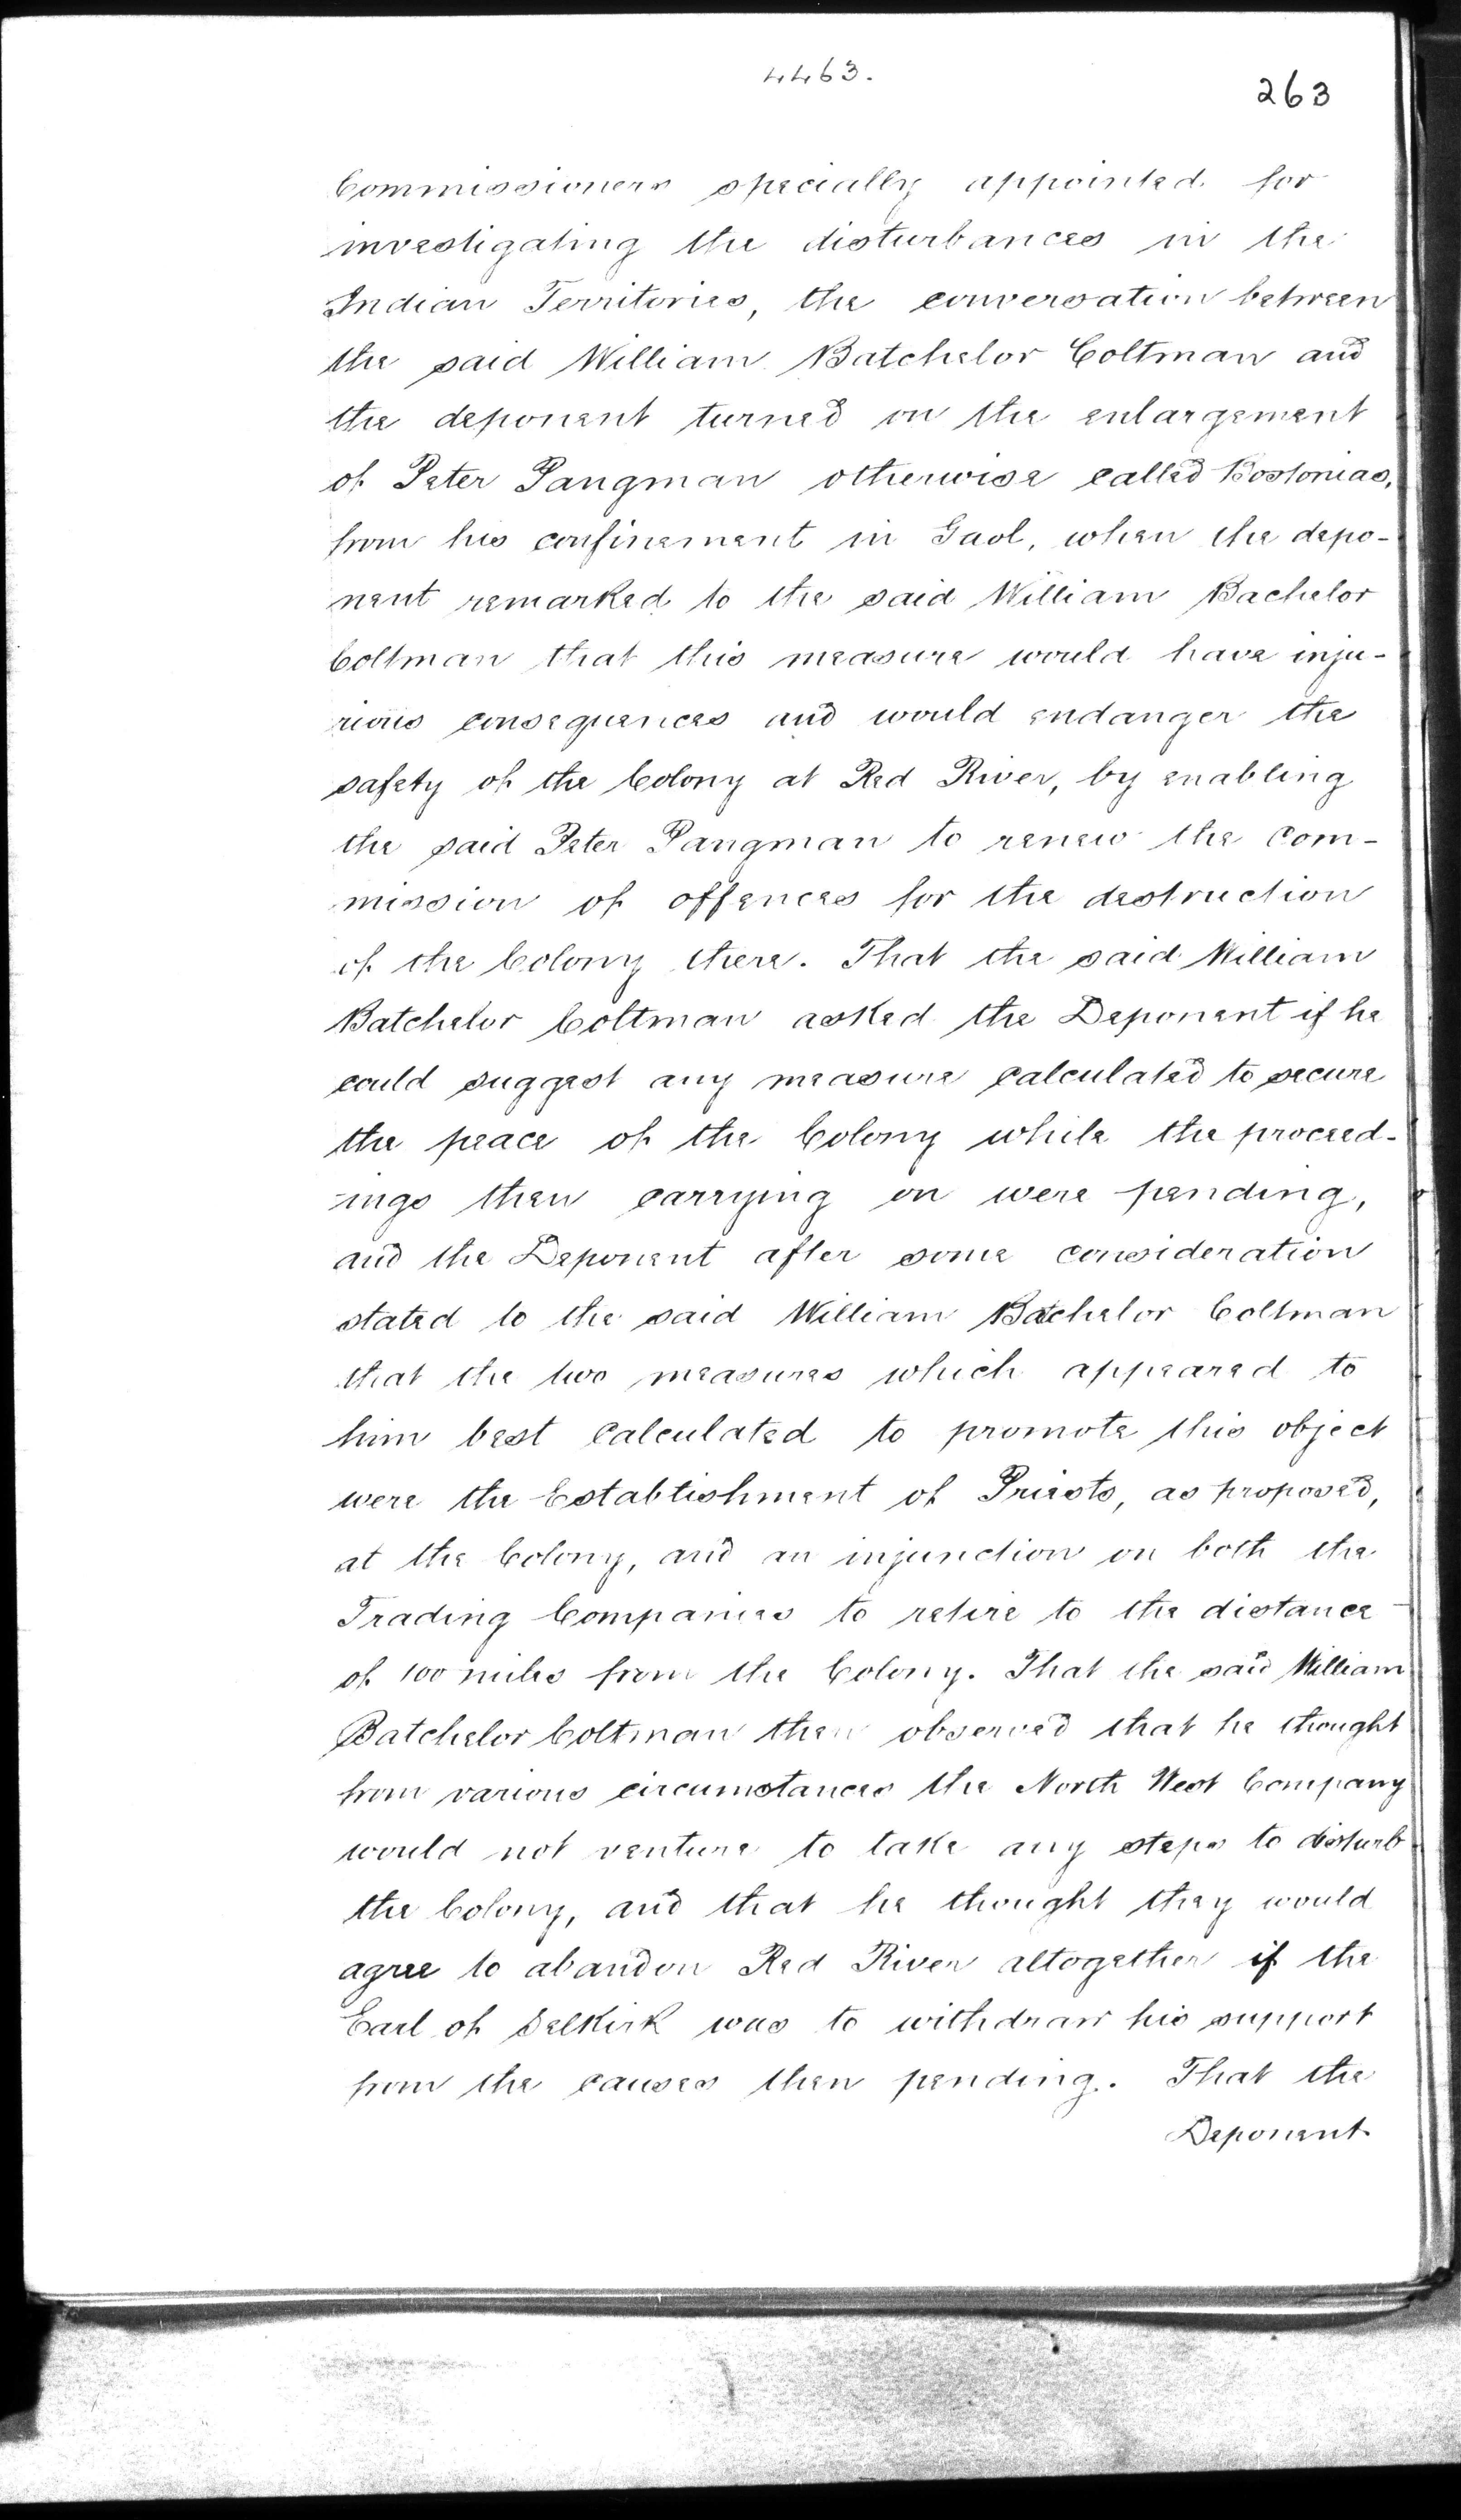 4463.
263
Commissioners specially appointed for
investigating the disturbances in the
Indian Territories, the conversation between
the said William Batchelor Coltman and
the deponent turned on the enlargement
of Peter Pangman otherwise called Bostonias,
from his confinement in Gaol, when the depo-
nent remarked to the said William Bachelor
Coltman that this measure would have inju-
rious consequences and would endanger the
safety of the Colony at Red River, by enabling
the said Peter Pangman to renew the com-
mission of offences for the destruction
of the Colony there. That the said William
Batchelor Coltman asked the Deponent if he
could suggest any measure calculated to secure
the peace of the Colony while the proceed-
ings then carrying on were pending,
and the Deponent after some consideration
stated to the said William Batchelor Coltman
that the two measures which appeared to
him best calculated to promote this object
were the Establishment of Priests, as proposed,
at the Colony, and an injunction on both the
Trading Companies to retire to the distance
of 100 miles from the Colony. That the said William
Batchelor Coltman then observed that he thought
from various circumstances the North West Company
would not venture to take any steps to disturb
the Colony, and that he thought they would
agree to abandon Red River altogether if the
Earl of Selkirk was to withdraw his support
from the causes then pending. That the
Deponent